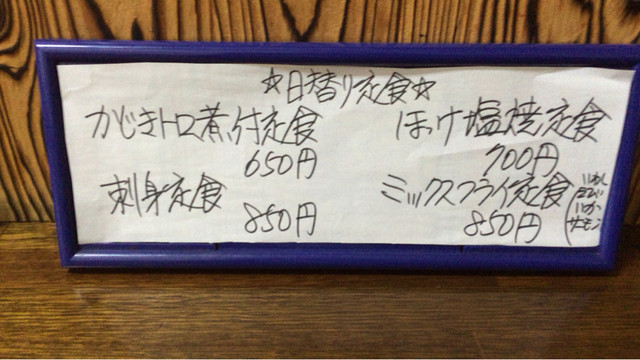 ☆日替り定食☆
かじきトロ煮付定食
650円
刺身定食
850円
ほっけ塩焼定食
700円
ミックスフライ定食
850円
いわし
エビ
いか
サーモン